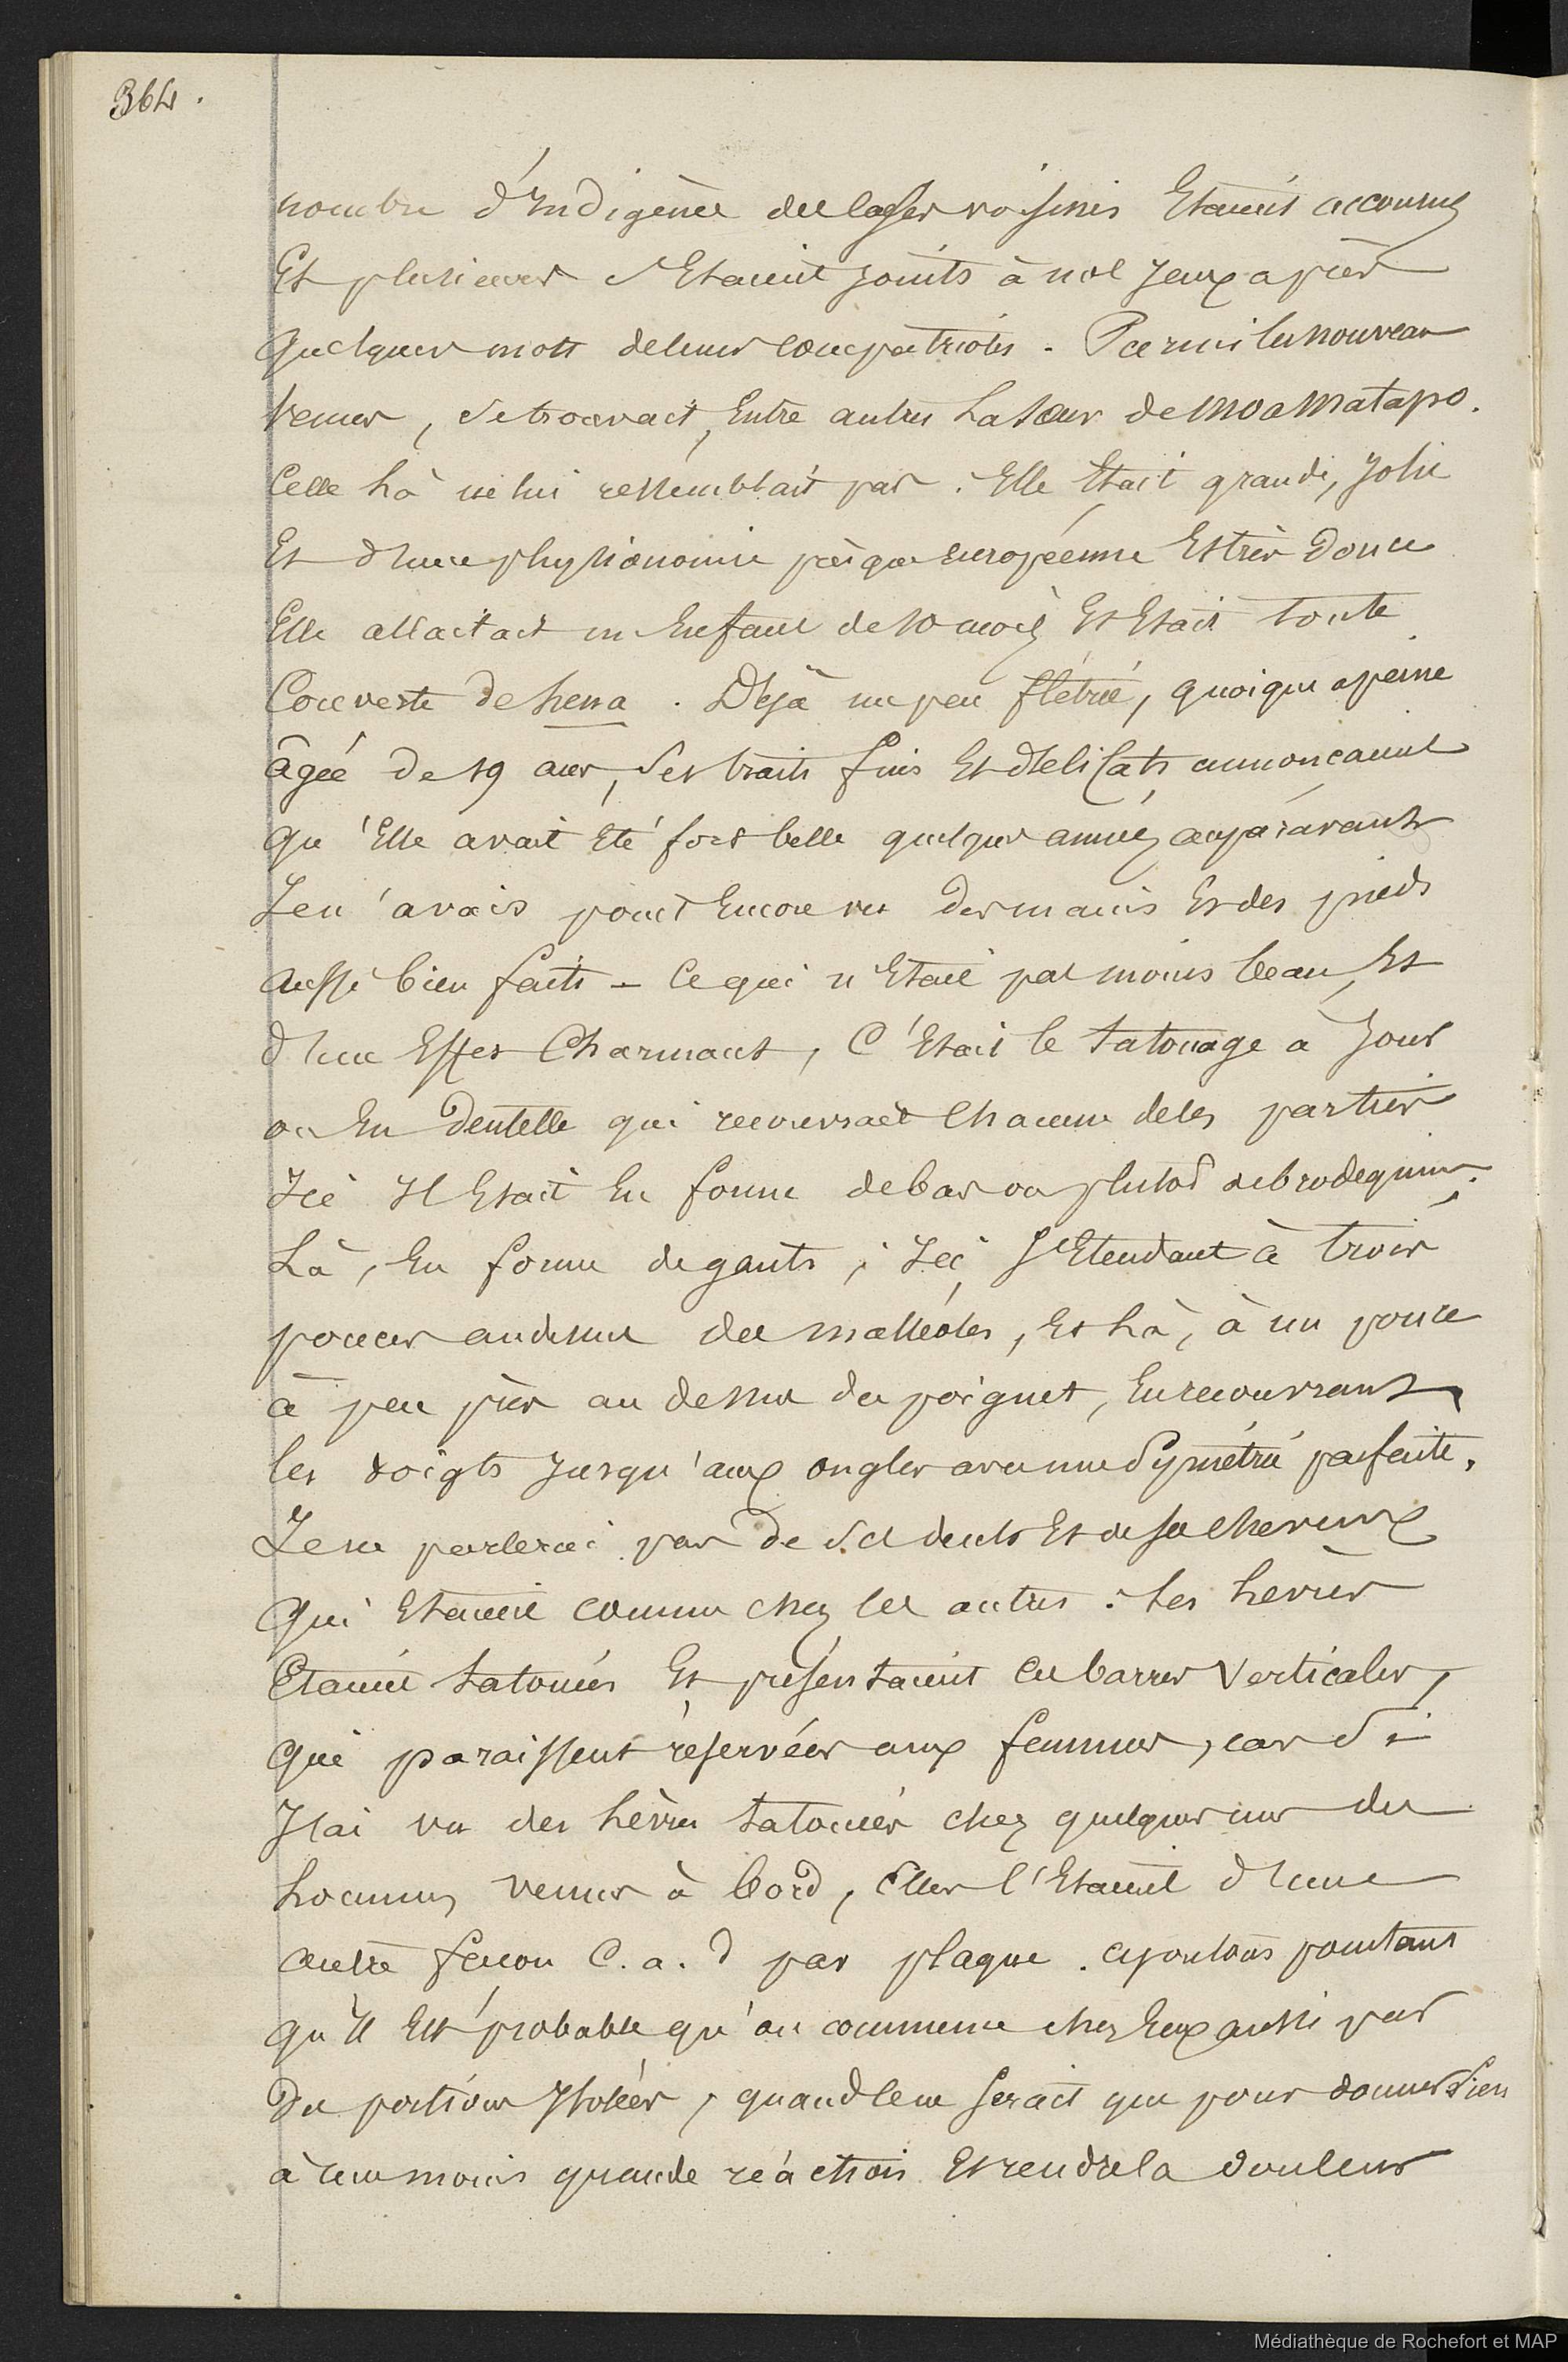 364.
nombre d'Indigènes des cases voisines Etaient accourus
Et plusieurs s'Etaient joints à nos jeux après
quelques mots de leurs compatriotes. Parmi les nouveau
venus, se trouvait, Entre autres La sœur de Moamatapo.
Celle Là ne lui ressemblait pas. Elle Etait grande, Jolie
Et d'une physionomie presque Européenne Et très Douce
Elle allaitait un Enfant de 10 mois Et Etait toute
Couverte de hena. Déjà un peu flétrie, quoique apeine
âgée de 19 ans, ses traits fins Et délicats annoncaient
qu'Elle avait Eté fort belle quelques années auparavant
Je n'avais point Encore vu Des mains Et des pieds
aussi bien faits – Ce qui n'Etait pas moins beau, Et
d'un Effet Charmant, C'Etait le tatouage à Jour
ou En Dentelle qui recouvrait Chacune de ces parties
Ici Il Etait En forme de bas ou plutot de brodequins;
Là, En forme de gants; Ici, s'Etendant à trois
pouces audessus des malléoles, Et Là, à un pouce
à peu près au dessus du poignet, En recouvrant
les doigts Jusqu'aux ongles avec une Symétrie parfaite.
Je ne parlerai pas de ses dents Et de ses cheveux
Qui Etaient comme chez les autres. Ses Lèvres
Etaient tatouées Et présentaient ces barres Verticales,
qui paraissent réservées aux femmes, car si
J'ai vu des Lèvres tatouées chez quelques uns des
hommes venus à bord, Elles l'Etaient d'une
autre facon C. a. d par plaque. ajoutons pourtant
qu'Il Est probable qu'on commence chez Eux aussi par
Des portions Isolées, quand ce ne serait que pour donner Lieu
à une moins grande réaction Et rendre la douleur
Médiathèque de Rochefort et MAP